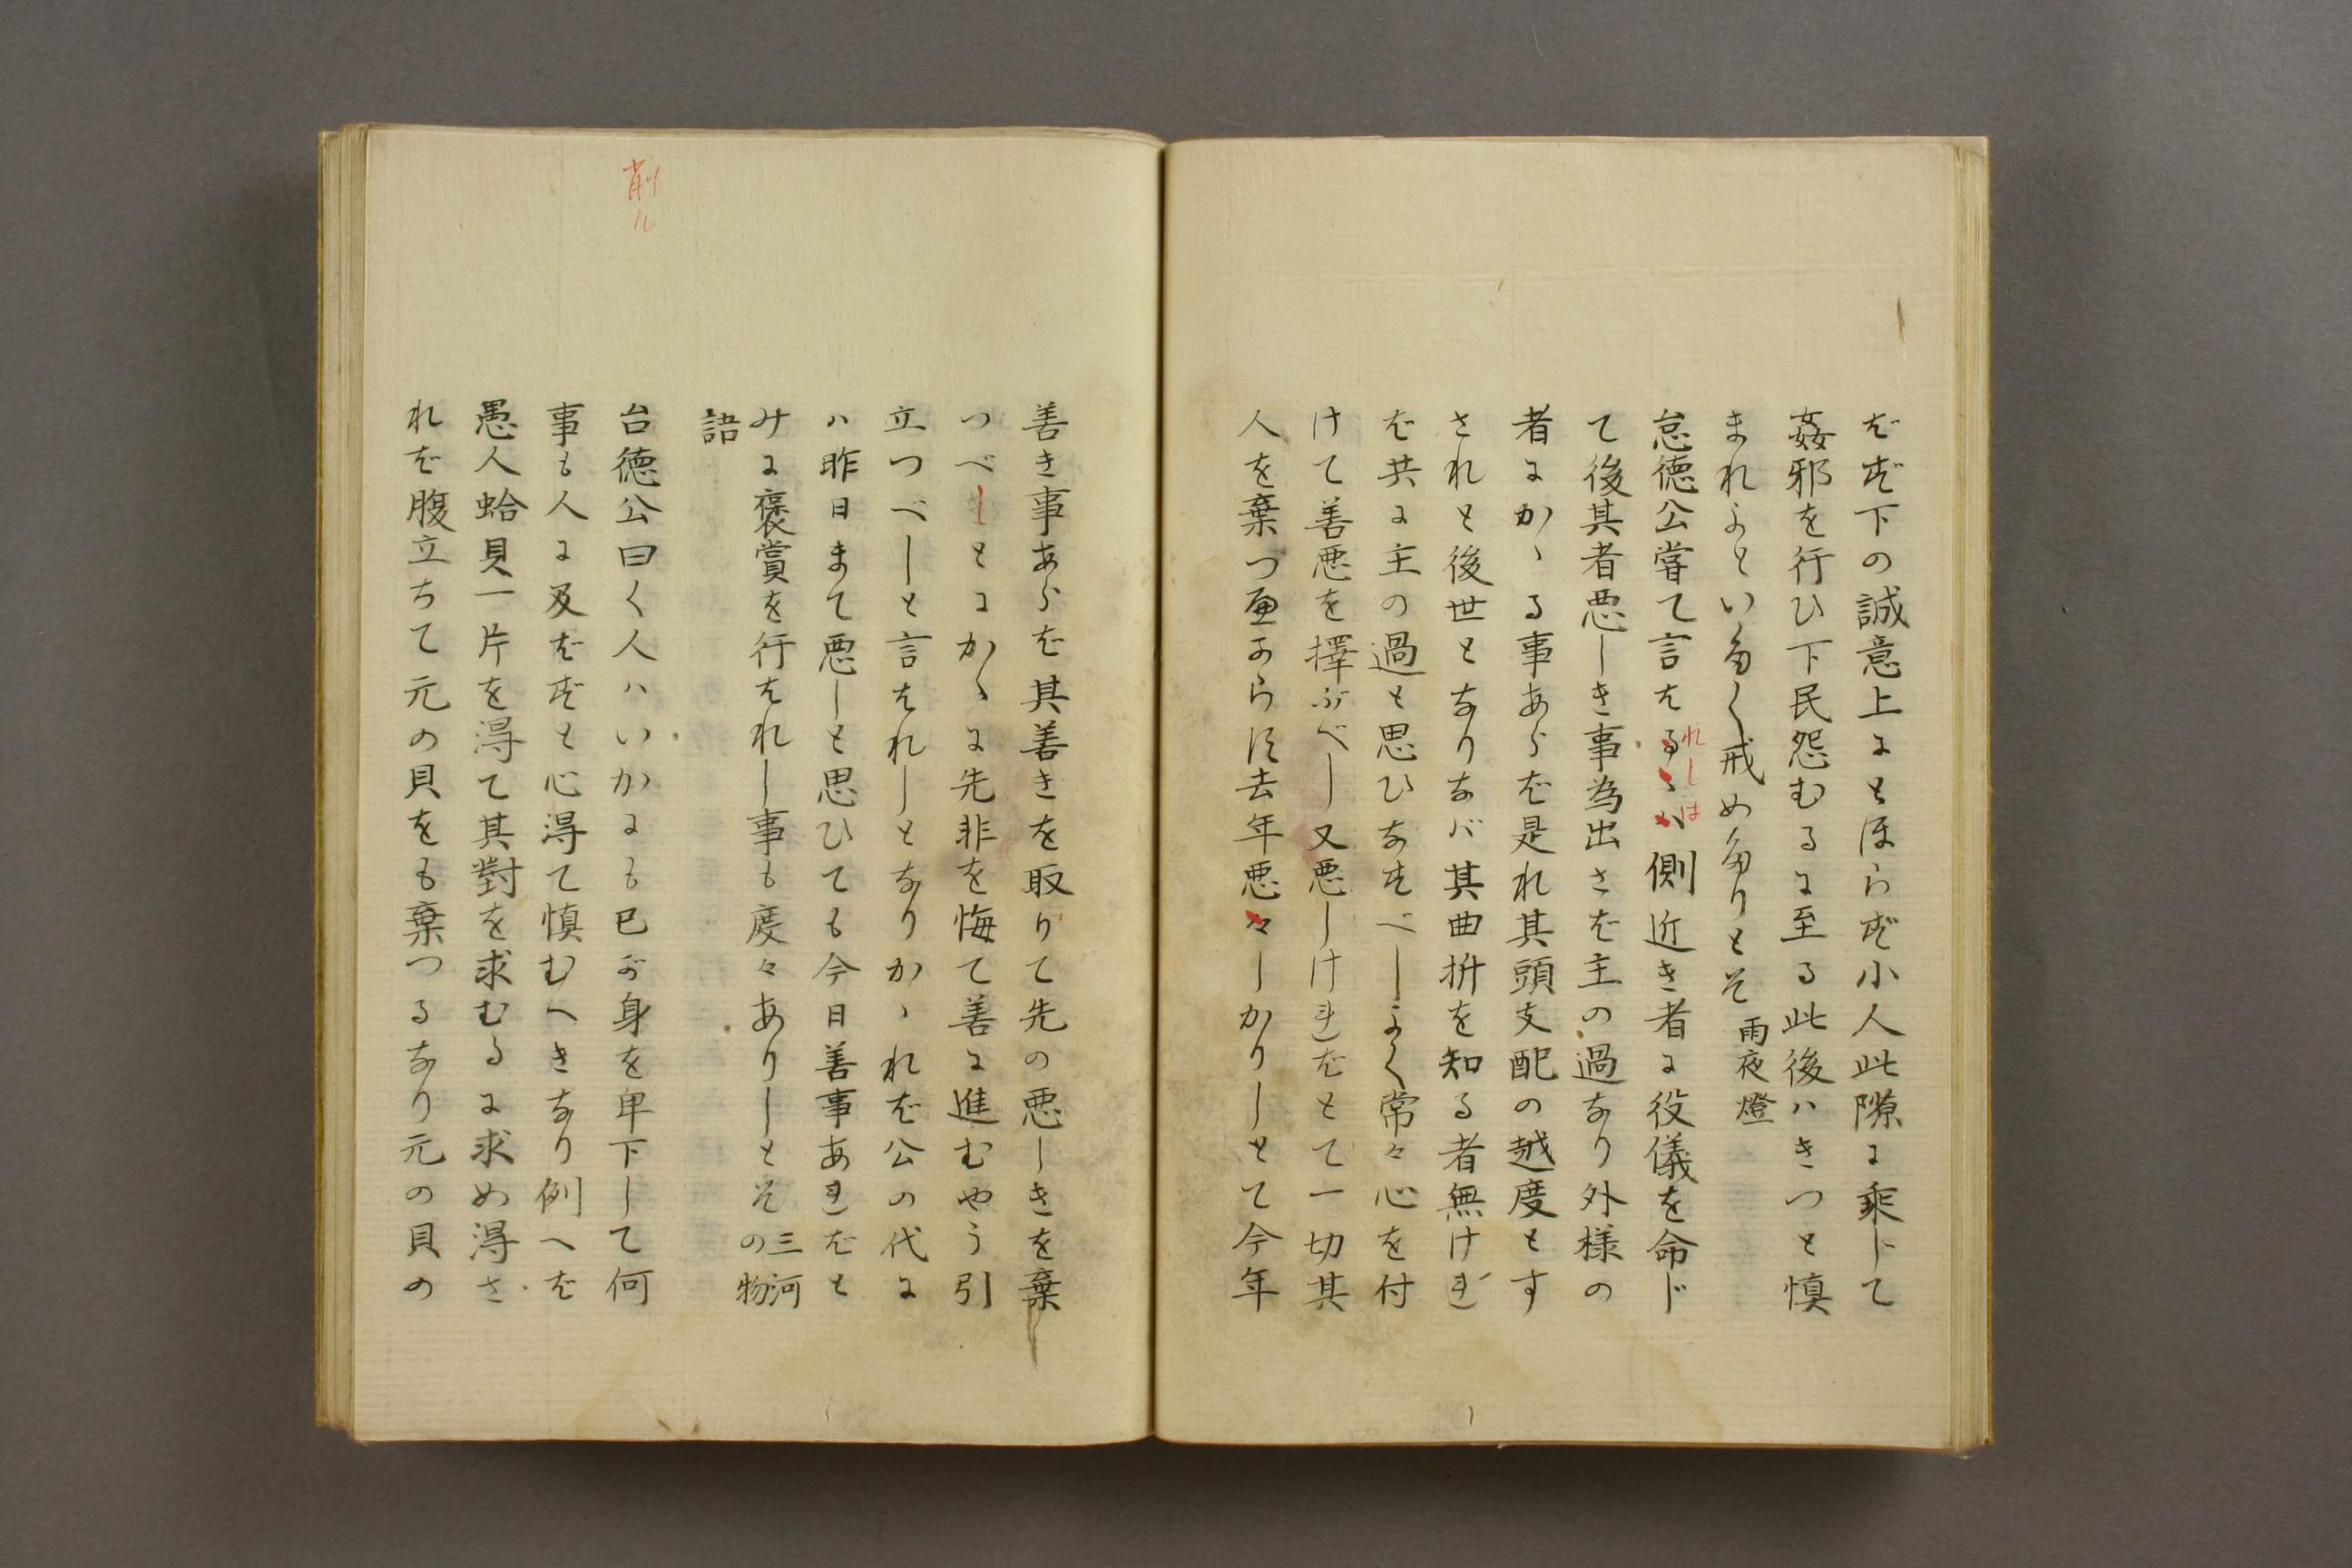 ば下の誠意上にとほらず小人此隙に乗じて
姦邪を行ひ下民怨むるに至る此後ハきつと慎
まれよといたく戒め給りとぞ 雨夜燈
怠徳公嘗て言はれしは側近き者に役儀を命ド
て後其者悪しき事為出さば主の過なり外様の
者にかゝる事あらば是れ其頭支配の越度とす
されと後世となりなバ其曲折を知る者無けれ
ば共に主の過と思ひなすべしよく常々心を付
けて善悪を擇ぶべし又悪しければとて一切其
人を棄つ可からず去年悪しかりしとて今年
善き事あらば其善きを取りて先の悪しきを棄
つべしとにかくに先非を悔て善に進むやう引
立つべしと言はれしとなりかゝれば公の代に
ハ昨日まて悪しと思ひても今日善事あればと
みに褒賞を行はれし事も度々ありしとぞ 三河の物
語
削ル
台徳公曰く人ハいかにも己が身を卑下して何
事も人に及ばずと心得て慎むへきなり例へば
愚人蛤貝一片を得て其對を求むるに求め得さ
れば腹立ちて元の貝をも棄つるなり元の貝の